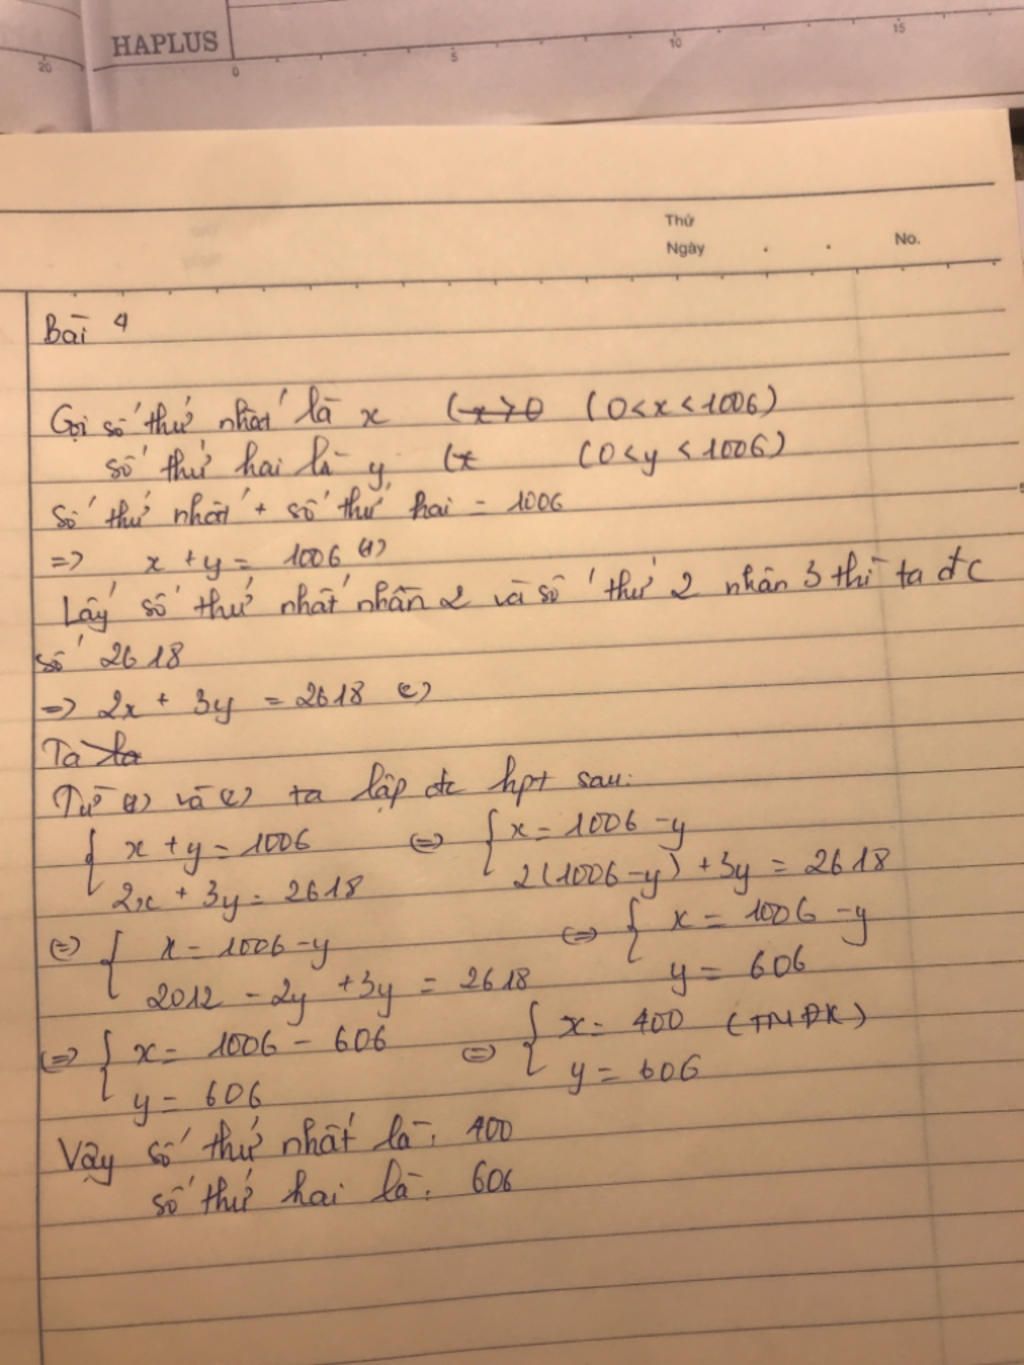 HAPLUS
20
0 5 10 15
Thứ
Ngày . . No.
Bài 4
Gọi số thứ nhất là x (x>0 (0<x<1006)
số thứ hai là y (x (0<y<1006)
Số thứ nhất + số thứ hai = 1006
=> x + y = 1006 (1)
Lấy số thứ nhất nhân 2 và số thứ 2 nhân 3 thì ta đc
số 2618
=> 2x + 3y = 2618 (2)
Ta ta
Từ (1) và (2) ta lập đc hpt sau:
{ x + y = 1006 <=> { x = 1006 - y
2x + 3y = 2618 2(1006-y) + 3y = 2618
<=> { x = 1006 - y <=> { x = 1006 - y
2012 - 2y + 3y = 2618 y = 606
<=> { x = 1006 - 606 <=> { x = 400 (TMĐK)
y = 606 y = 606
Vậy số thứ nhất là: 400
số thứ hai là: 606